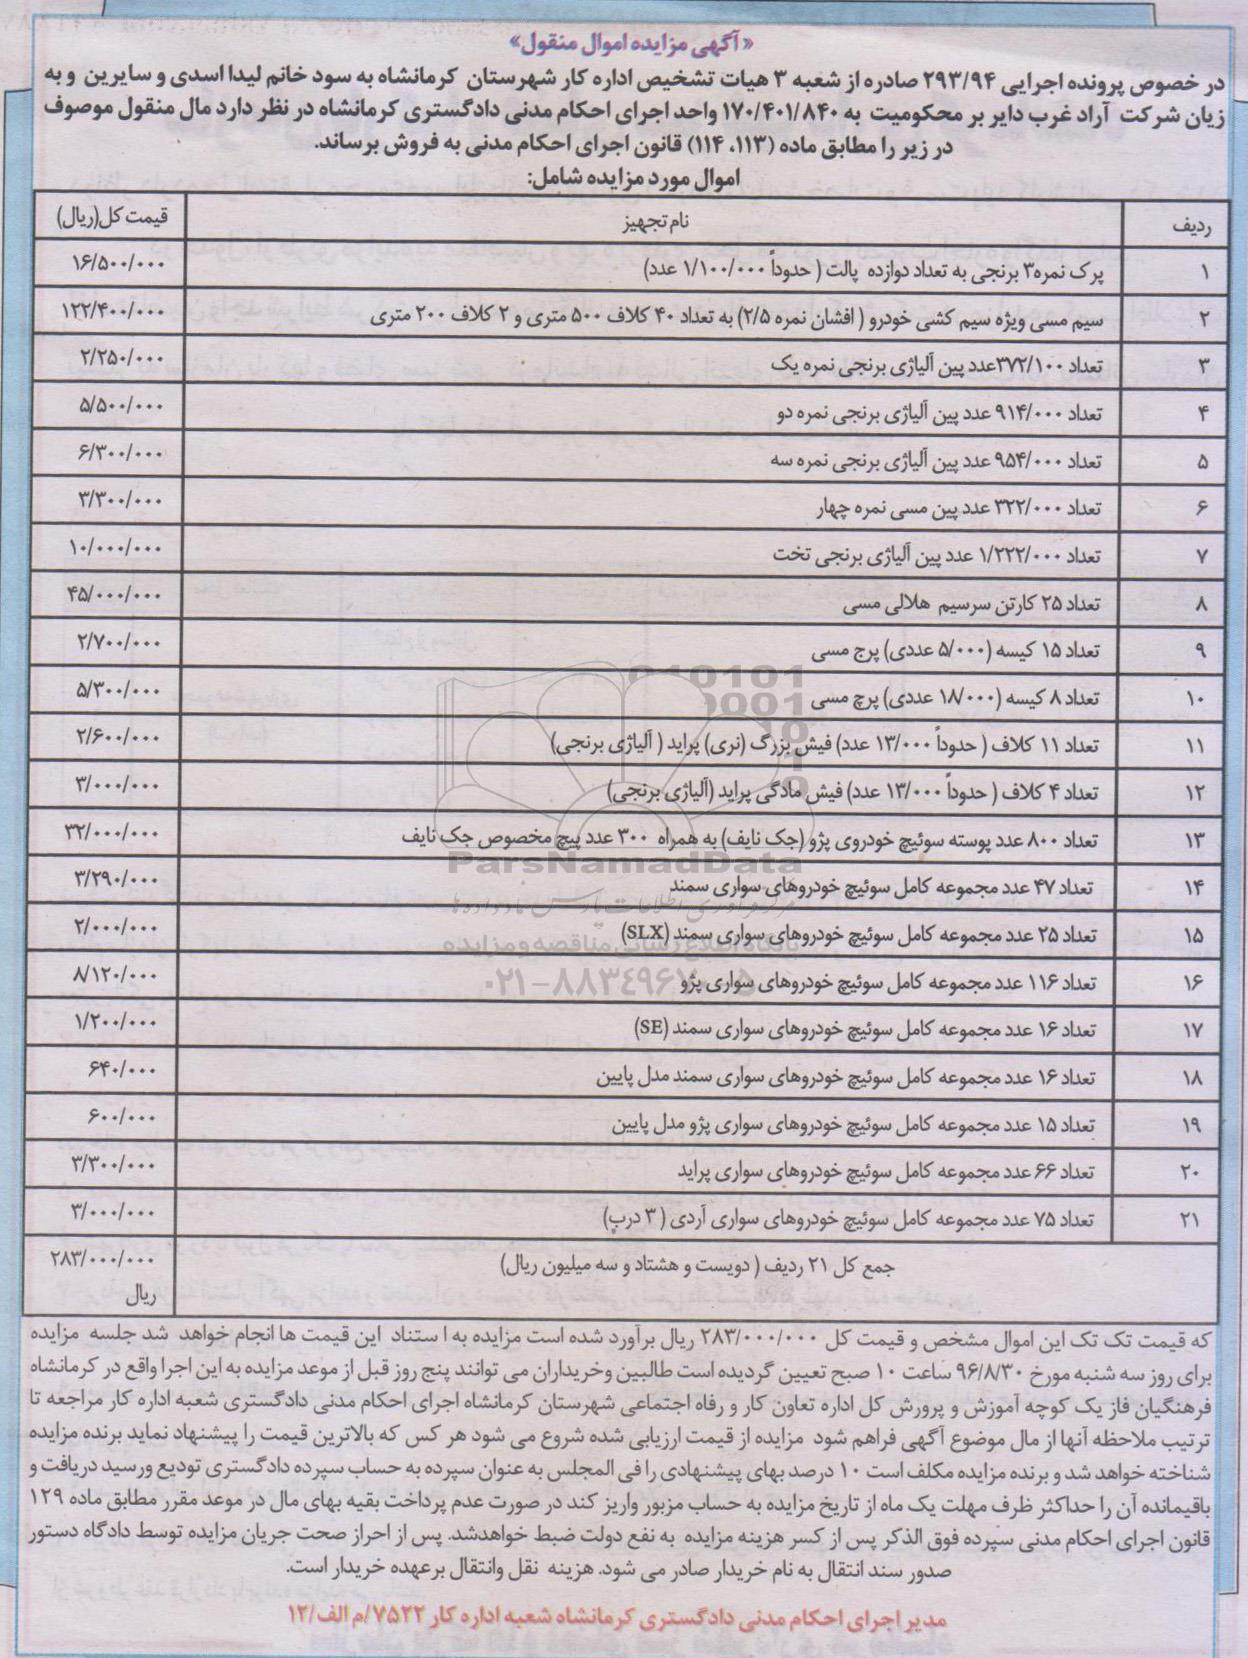 «آگهی مزایده اموال منقول»
در خصوص پرونده اجرایی ۲۹۳/۹۴ صادره از شعبه ۳ هیات تشخیص اداره کار شهرستان کرمانشاه به سود خانم لیدا اسدی و سایرین و به
زیان شرکت آراد غرب دایر بر محکومیت به ۱۷۰/۴۰۱/۸۴۰ واحد اجرای احکام مدنی دادگستری کرمانشاه در نظر دارد مال منقول موصوف
در زیر را مطابق ماده (۱۱۳، ۱۱۴) قانون اجرای احکام مدنی به فروش برساند.
اموال مورد مزایده شامل:
ردیف نام تجهیز قیمت کل(ریال)
۱ پرک نمره۳ برنجی به تعداد دوازده پالت ( حدوداً ۱/۱۰۰/۰۰۰ عدد) ۱۶/۵۰۰/۰۰۰
۲ سیم مسی ویژه سیم کشی خودرو ( افشان نمره ۲/۵) به تعداد ۴۰ کلاف ۵۰۰ متری و ۲ کلاف ۲۰۰ متری ۱۲۲/۴۰۰/۰۰۰
۳ تعداد ۳۷۲/۱۰۰عدد پین آلیاژی برنجی نمره یک ۲/۲۵۰/۰۰۰
۴ تعداد ۹۱۴/۰۰۰ عدد پین آلیاژی برنجی نمره دو ۵/۵۰۰/۰۰۰
۵ تعداد ۹۵۴/۰۰۰ عدد پین آلیاژی برنجی نمره سه ۶/۳۰۰/۰۰۰
۶ تعداد ۳۲۲/۰۰۰ عدد پین مسی نمره چهار ۳/۳۰۰/۰۰۰
۷ تعداد ۱/۲۲۲/۰۰۰ عدد پین آلیاژی برنجی تخت ۱۰/۰۰۰/۰۰۰
۸ تعداد ۲۵ کارتن سرسیم هلالی مسی ۴۵/۰۰۰/۰۰۰
۹ تعداد ۱۵ کیسه (۵/۰۰۰ عددی) پرچ مسی ۲/۷۰۰/۰۰۰
۱۰ تعداد ۸ کیسه (۱۸/۰۰۰ عددی) پرچ مسی ۵/۳۰۰/۰۰۰
۱۱ تعداد ۱۱ کلاف ( حدوداً ۱۳/۰۰۰ عدد) فیش بزرگ (نری) پراید ( آلیاژی برنجی) ۲/۶۰۰/۰۰۰
۱۲ تعداد ۴ کلاف ( حدوداً ۱۳/۰۰۰ عدد) فیش مادگی پراید (آلیاژی برنجی) ۳/۰۰۰/۰۰۰
۱۳ تعداد ۸۰۰ عدد پوسته سوئیچ خودروی پژو (جک نایف) به همراه ۳۰۰ عدد پیچ مخصوص جک نایف ۳۲/۰۰۰/۰۰۰
۱۴ تعداد ۴۷ عدد مجموعه کامل سوئیچ خودروهای سواری سمند ۳/۲۹۰/۰۰۰
۱۵ تعداد ۲۵ عدد مجموعه کامل سوئیچ خودروهای سواری سمند (SLX) ۲/۰۰۰/۰۰۰
۱۶ تعداد ۱۱۶ عدد مجموعه کامل سوئیچ خودروهای سواری پژو ۸/۱۲۰/۰۰۰
۱۷ تعداد ۱۶ عدد مجموعه کامل سوئیچ خودروهای سواری سمند (SE) ۱/۲۰۰/۰۰۰
۱۸ تعداد ۱۶ عدد مجموعه کامل سوئیچ خودروهای سواری سمند مدل پایین ۶۴۰/۰۰۰
۱۹ تعداد ۱۵ عدد مجموعه کامل سوئیچ خودروهای سواری پژو مدل پایین ۶۰۰/۰۰۰
۲۰ تعداد ۶۶ عدد مجموعه کامل سوئیچ خودروهای سواری پراید ۳/۳۰۰/۰۰۰
۲۱ تعداد ۷۵ عدد مجموعه کامل سوئیچ خودروهای سواری آردی ( ۳ درب) ۳/۰۰۰/۰۰۰
جمع کل ۲۱ ردیف ( دویست و هشتاد و سه میلیون ریال) ۲۸۳/۰۰۰/۰۰۰
ریال
که قیمت تک تک این اموال مشخص و قیمت کل ۲۸۳/۰۰۰/۰۰۰ ریال برآورد شده است مزایده به ا ستناد این قیمت ها انجام خواهد شد جلسه مزایده
برای روز سه شنبه مورخ ۹۶/۸/۳۰ ساعت ۱۰ صبح تعیین گردیده است طالبین وخریداران می توانند پنج روز قبل از موعد مزایده به این اجرا واقع در کرمانشاه
فرهنگیان فاز یک کوچه آموزش و پرورش کل اداره تعاون کار و رفاه اجتماعی شهرستان کرمانشاه اجرای احکام مدنی دادگستری شعبه اداره کار مراجعه تا
ترتیب ملاحظه آنها از مال موضوع آگهی فراهم شود مزایده از قیمت ارزیابی شده شروع می شود هر کس که بالاترین قیمت را پیشنهاد نماید برنده مزایده
شناخته خواهد شد و برنده مزایده مکلف است ۱۰ درصد بهای پیشنهادی را فی المجلس به عنوان سپرده به حساب سپرده دادگستری تودیع ورسید دریافت و
باقیمانده آن را حداکثر ظرف مهلت یک ماه از تاریخ مزایده به حساب مزبور واریز کند در صورت عدم پرداخت بقیه بهای مال در موعد مقرر مطابق ماده ۱۲۹
قانون اجرای احکام مدنی سپرده فوق الذکر پس از کسر هزینه مزایده به نفع دولت ضبط خواهدشد. پس از احراز صحت جریان مزایده توسط دادگاه دستور
صدور سند انتقال به نام خریدار صادر می شود. هزینه نقل وانتقال برعهده خریدار است.
مدیر اجرای احکام مدنی دادگستری کرمانشاه شعبه اداره کار ۷۵۲۲/م الف/۱۲
ParsNamadData
پایگاه اطلاع رسانی مناقصه و مزایده